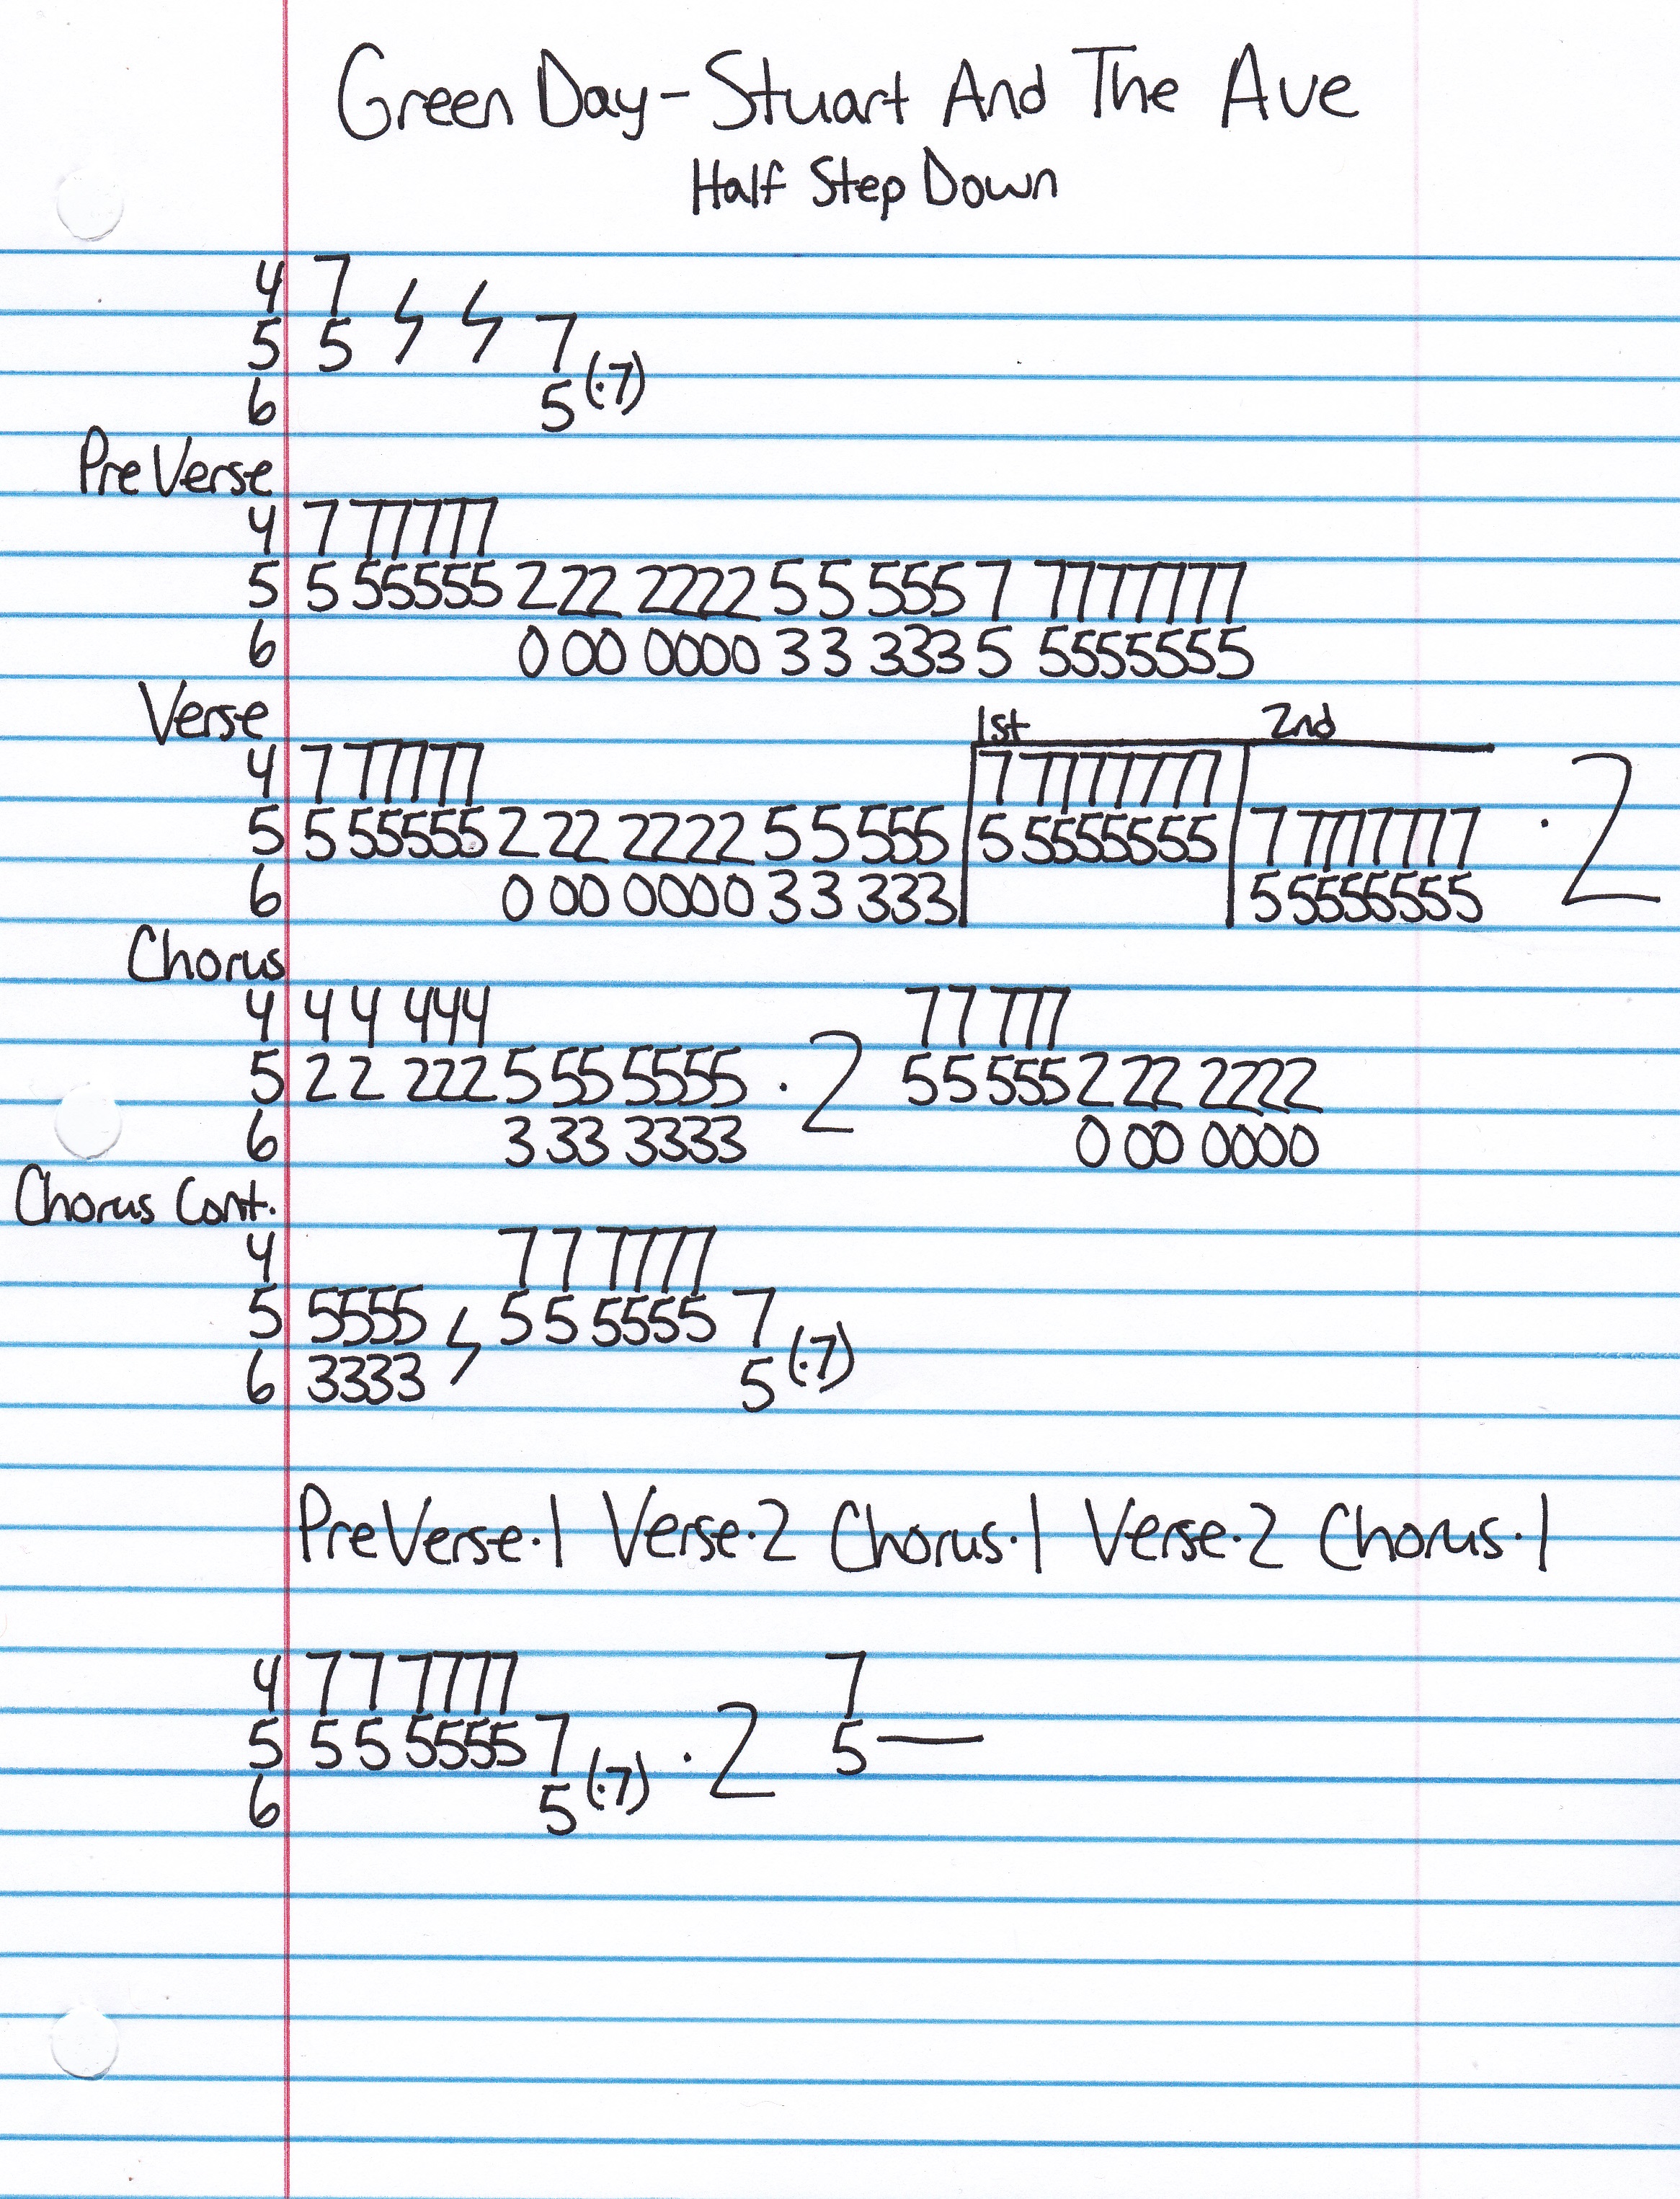 Green Day - Stuart And The Ave
Half Step Down
4 7
5 5 7
6 5 (·7)
Pre Verse
4 7 77777
5 5 55555 222 2222 5 5 555 7 7777777
6 0 00 0000 3 3 333 5 5555555
Verse 1st 2nd
4 7 77777 7 7777777
5 5 55555 2 22 2222 5 5 555 5 5555555 7 7777777 · 2
6 0 00 0000 3 3 333 5 5555555
Chorus
4 4 4 444 77 777
5 2 2 222 5 55 5555 · 2 55 555 2 22 2222
6 3 33 3333 0 00 0000
Chorus Cont.
4 7 7 7777
5 5555 5 5 5555 7
6 3333 5 (·7)
PreVerse·1 Verse·2 Chorus·1 Verse·2 Chorus·1
4 7 7 7777 7
5 5 5 5555 7 · 2 5 —
6 5 (·7)